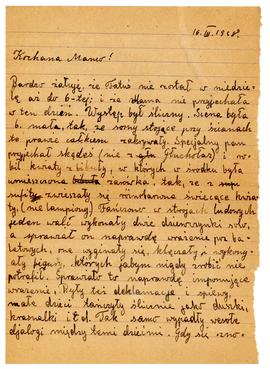 16. IV. 1948.
Kochana Mamo!
Bardzo żałuję, że Tatuś nie został w niedzie-
lę aż do 6-tej; i że Mama nie przyjechała
w ten dzień. Występ był śliczny. Scena była
b. mała, tak, że sosny stojące przy ścianach
to prawie całkiem zakrywały. Specjalny pan
przyjechał skądeś (nie z Głuchołaz) i ro-
bił kwiaty z bibuły, w których w środku była
umieszczona żarówka, tak, że z
sufitu zwieszały się świecące kwia-
ty, (nie lampiony). Tańcono w strojach ludowych
jeden walc wykonały dwie dziewczynki solo,
sprawiał on naprawdę wrażenie pas ba-
letowych, one wyginały się, klęczały i wykony-
wały figury, których jabym nigdy zrobić nie
potrafił. Sprawiało to naprawdę imponujące
wrażenie. Były też deklamacje i śpiewy,
małe dzieci tańczyły ślicznie jako duszki,
krasnalki i t.d. Tak samo wypadły wesołe
djalogi między temi dziećmi. Gdy się